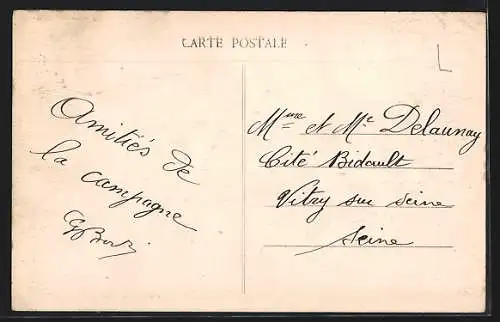 CARTE POSTALE
Amitiés de
la campagne
Mme et Mr Delaunay
Cité Bidault
Vitry sur Seine
Seine